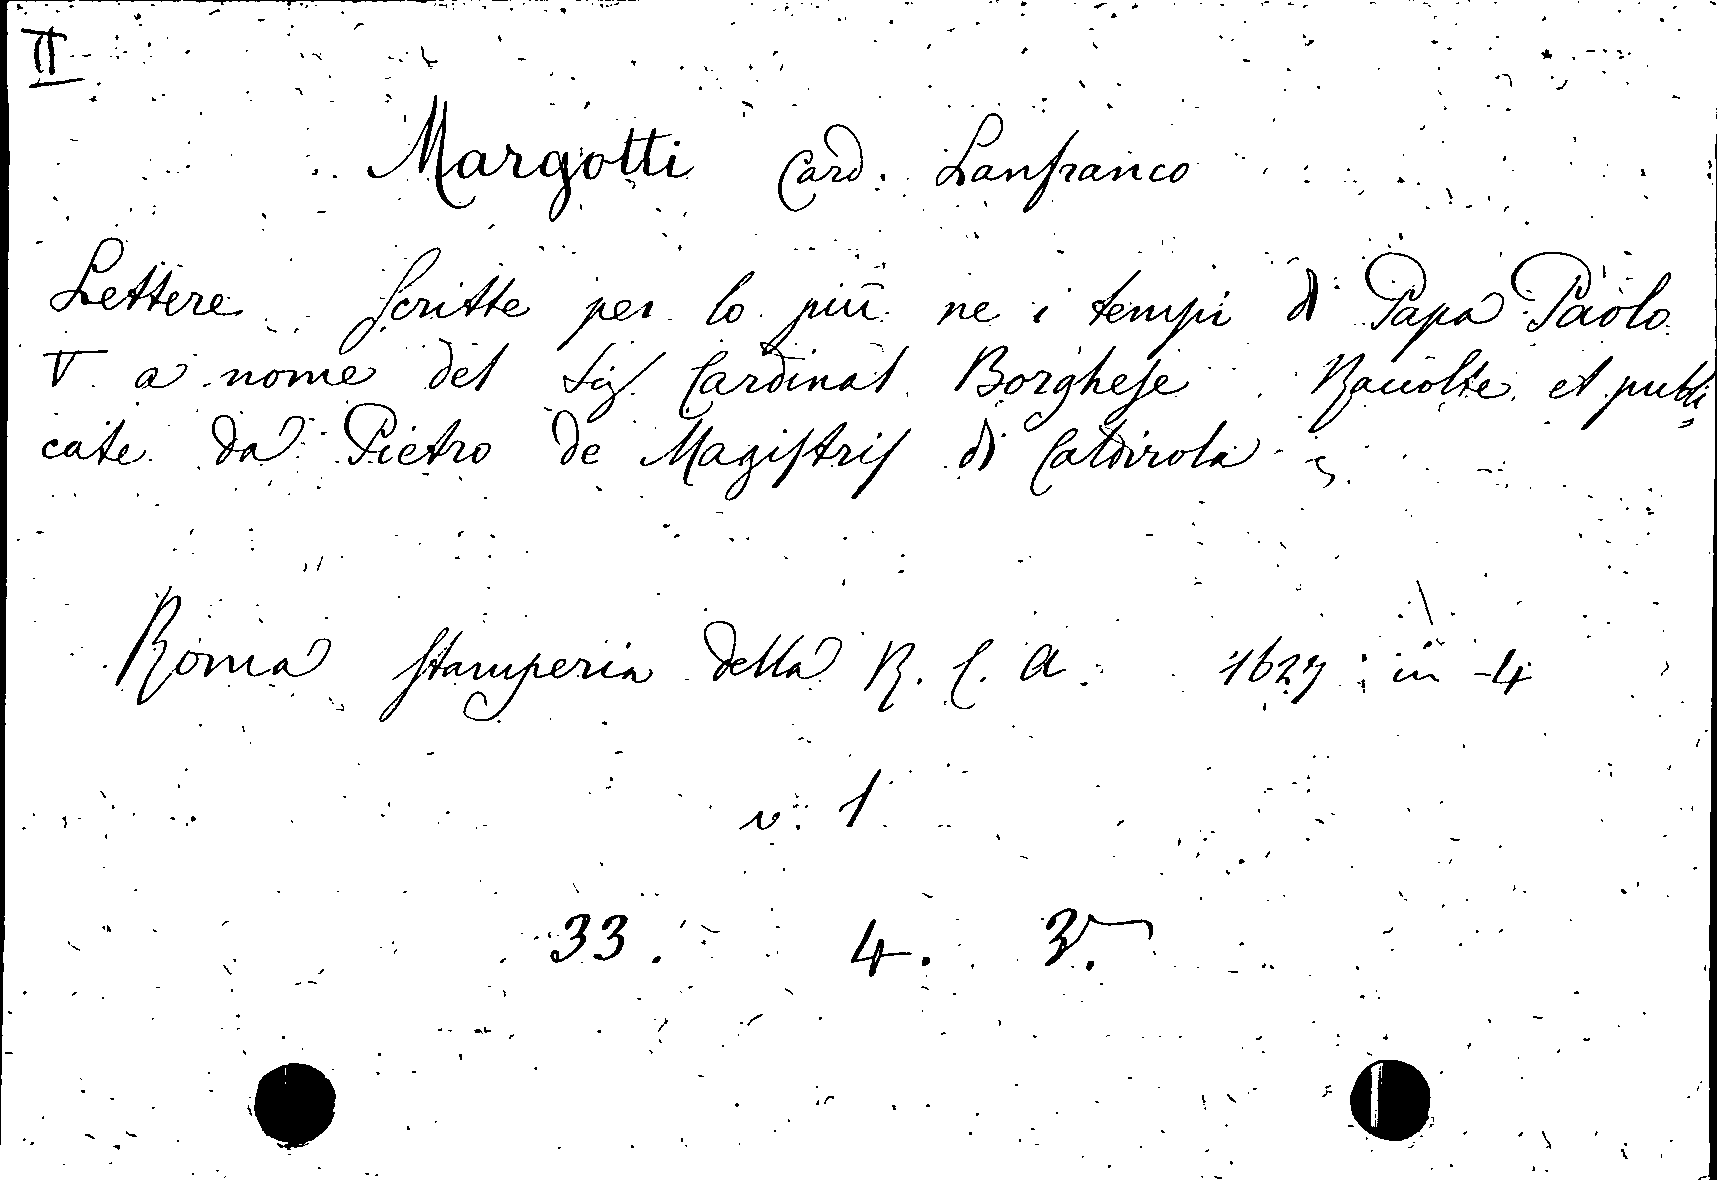 II
Margotti Card. Lanfranco
Lettere Scritte per lo più ne i tempi di Papa Paolo
V a nome del Sig. Cardinal Borghese Raccolte et publi
cate da Pietro de Magistris di Caldirola
Roma Stamperia della R. C. A. 1627 in-4
v. 1
33. 4. 3.